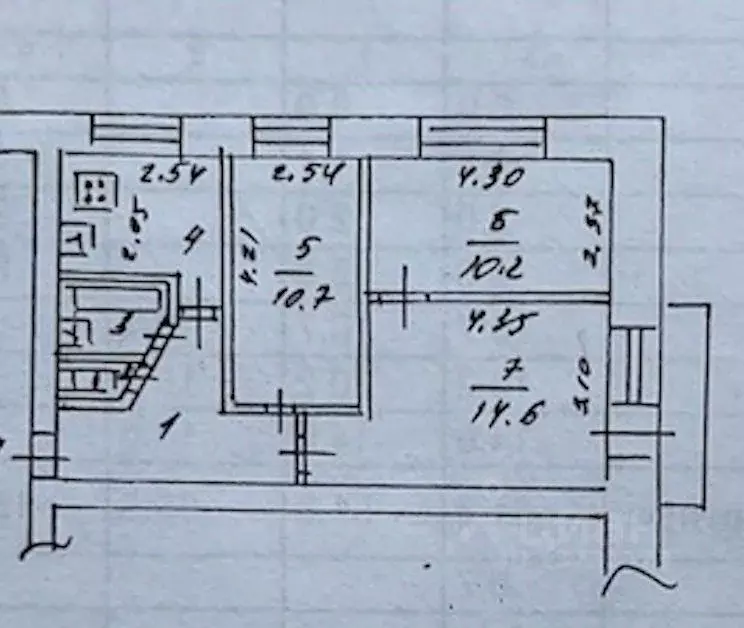 2.54
2.54
4.30
2.05
4
4.21
5
10.7
6
10.2
2.37
3
4.35
7
14.6
3.10
1